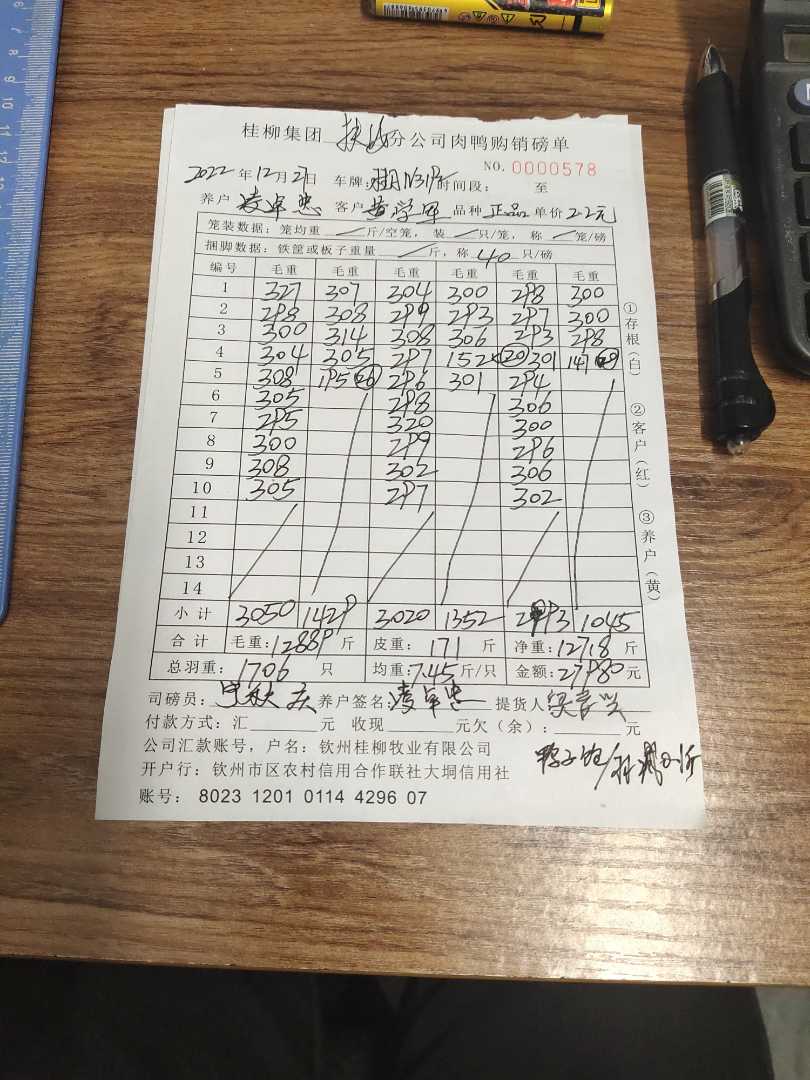 桂柳集团 扶 分公司肉鸭购销磅单
NO. 0000578
2022年12月27日 车牌: 时间段: 至
养户 凌卓忠 客户 黄学军 品种 正品 单价 2.2元
笼装数据: 笼均重 / 斤/空笼, 装 / 只/笼, 称 / 笼/磅
捆脚数据: 铁筐或板子重量 / 斤, 称 40 只/磅
编号 毛重 毛重 毛重 毛重 毛重 毛重
1 327 307 304 300 298 300
2 298 308 299 293 297 300
3 300 314 308 306 293 298
4 304 305 297 152 20 301 147
5 308 195 26 296 301 294
6 305 298 306
7 295 320 300
8 300 299 296
9 308 302 306
10 305 297 302
11
12
13
14
小计 3050 1429 3020 1352 2993 1045
合计 毛重: 12889 斤 皮重: 171 斤 净重: 12718 斤
总羽重: 1706 只 均重: 7.45 斤/只 金额: 27980 元
司磅员: 养户签名: 凌卓忠 提货人
付款方式: 汇 元 收现 元欠(余): 元
公司汇款账号, 户名: 钦州桂柳牧业有限公司
开户行: 钦州市区农村信用合作联社大垌信用社
鸭子
账号: 8023 1201 0114 4296 07
①存根(白)
②客户(红)
③养户(黄)
6
7
8
9
10
11